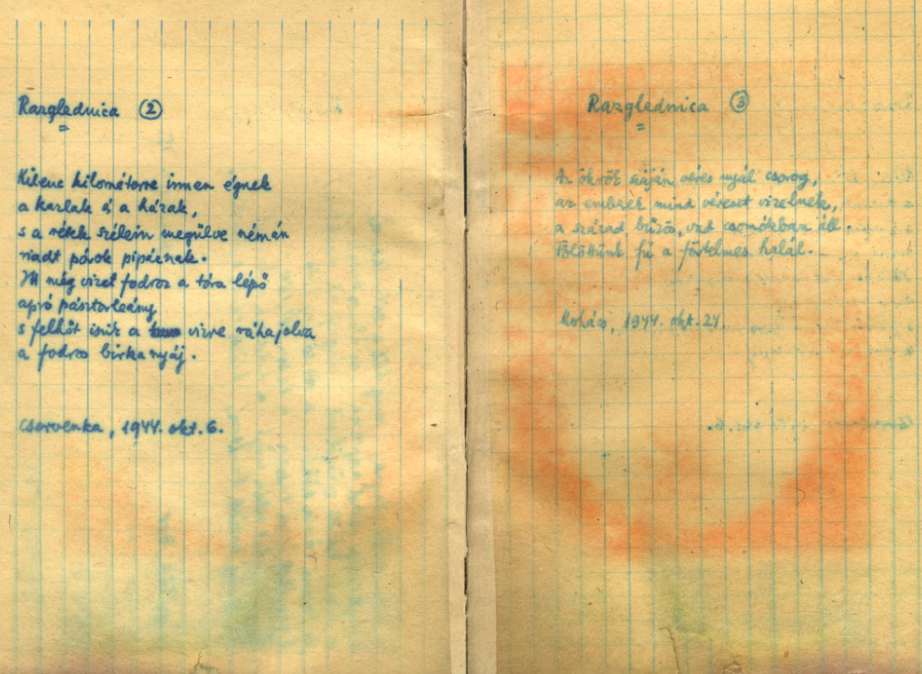 Razglednica (2)
Kilenc kilométerre innen égnek
a kazlak és a házak,
s a rétek szélein megülve némán
riadt pórok pipáznak.
Itt még vizet fodroz a tóra lépő
apró pásztorleány
s felhőt iszik a vizre ráhajolva
a fodros birkanyáj.
Cservenka, 1944. okt. 6.
Razglednica (3)
Az ökrök száján véres nyál csorog,
az emberek mind véreset vizelnek,
a század bűzös, vad csomókban áll.
Fölöttünk fú a förtelmes halál.
Mohács, 1944. okt. 24.